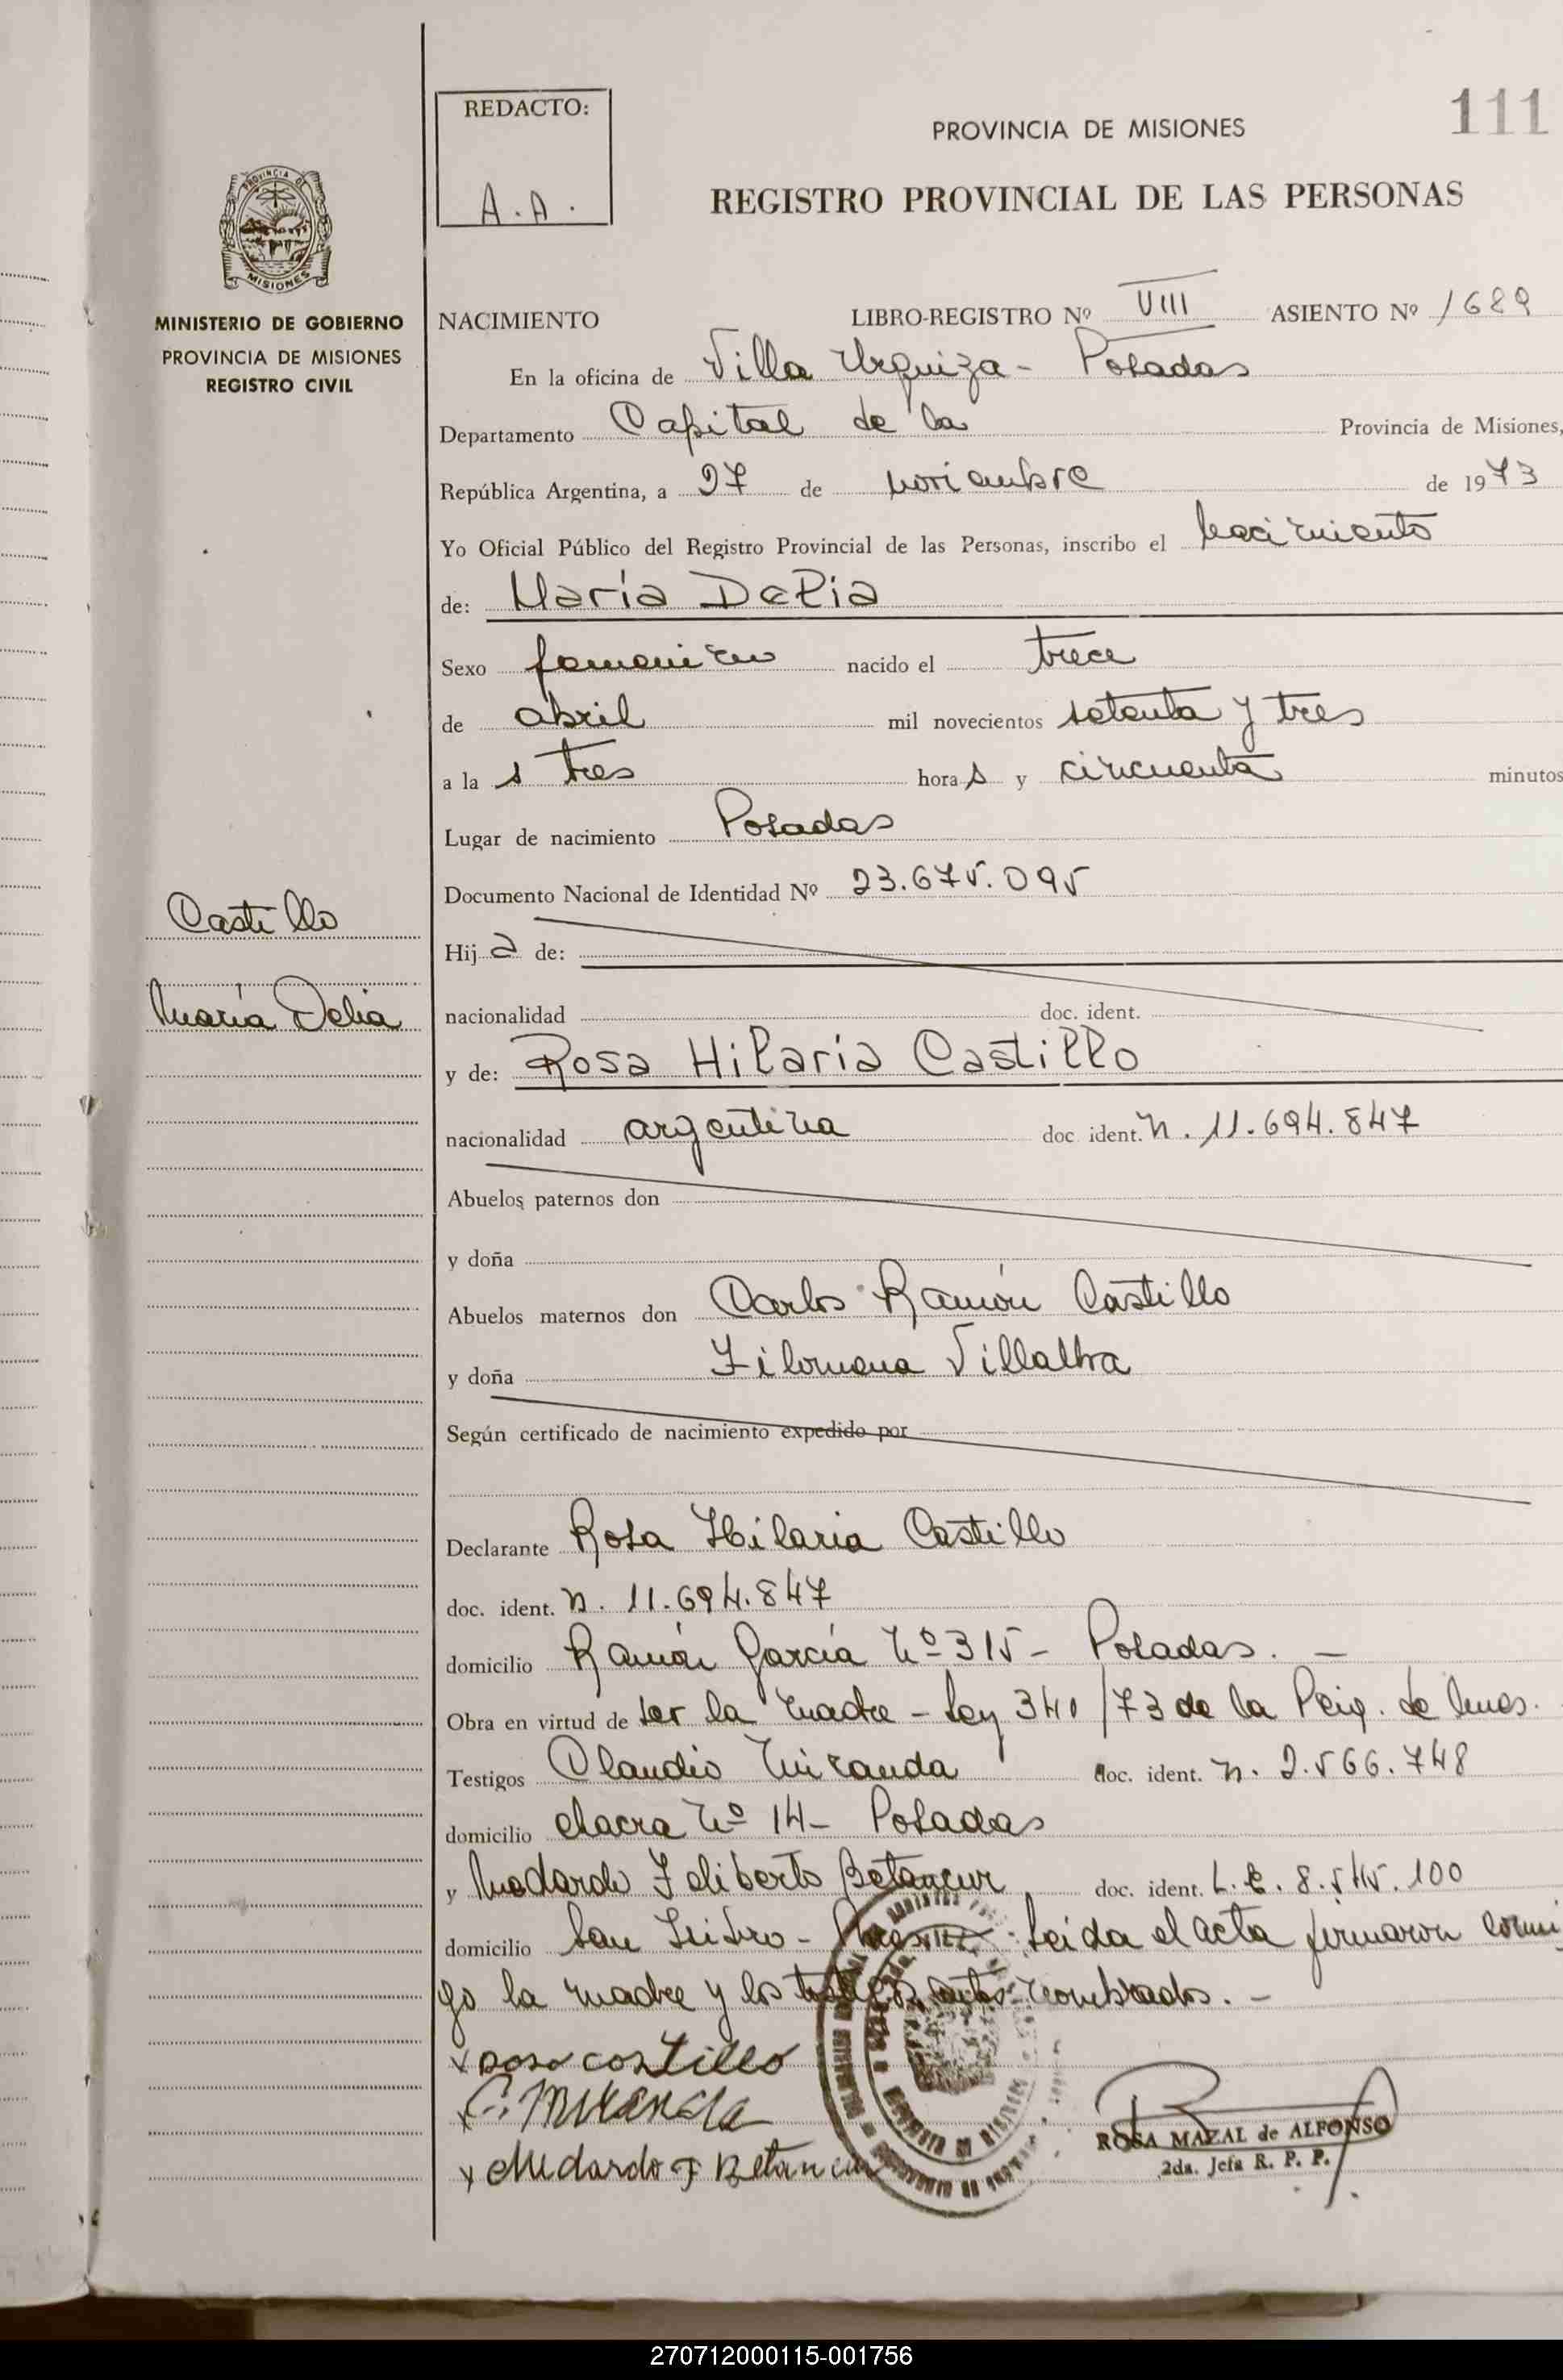 111
REDACTO:
A.A.
PROVINCIA DE MISIONES
REGISTRO PROVINCIAL DE LAS PERSONAS
PROVINCIA DE
MISIONES
MINISTERIO DE GOBIERNO
PROVINCIA DE MISIONES
REGISTRO CIVIL
NACIMIENTO LIBRO-REGISTRO Nº VIII ASIENTO Nº 1689
En la oficina de Villa Urquiza - Posadas
Departamento Capital de la Provincia de Misiones,
República Argentina, a 27 de noviembre de 1973
Yo Oficial Público del Registro Provincial de las Personas, inscribo el nacimiento
de: María Delia
Sexo femenino nacido el trece
de abril mil novecientos setenta y tres
a la s tres hora s y cincuenta minutos
Lugar de nacimiento Posadas
Documento Nacional de Identidad Nº 23.675.095
Castillo
María Delia
Hij a de:
nacionalidad doc. ident.
y de: Rosa Hilaria Castillo
nacionalidad argentina doc ident. n. 11.694.847
Abuelos paternos don
y doña
Abuelos maternos don Carlos Ramón Castillo
y doña Filomena Villalba
Según certificado de nacimiento expedido por
Declarante Rosa Hilaria Castillo
doc. ident. n. 11.694.847
domicilio Ramón García Nº 315 - Posadas. -
Obra en virtud de ser la madre - Ley 340/73 de la
Testigos Claudio Miranda doc. ident. n. 2.566.748
domicilio chacra Nº 14 - Posadas
y Medardo Feliberto Betancur doc. ident. L.E. 8.545.100
domicilio San Isidro - : Leída el acta firmaron conmi
go la madre y los testigos antes nombrados. -
x Rosa castillo
x C. Miranda
x Medardo F Betancur
ROSA MAZAL de ALFONSO
2da. Jefa R. P. P.
270712000115-001756